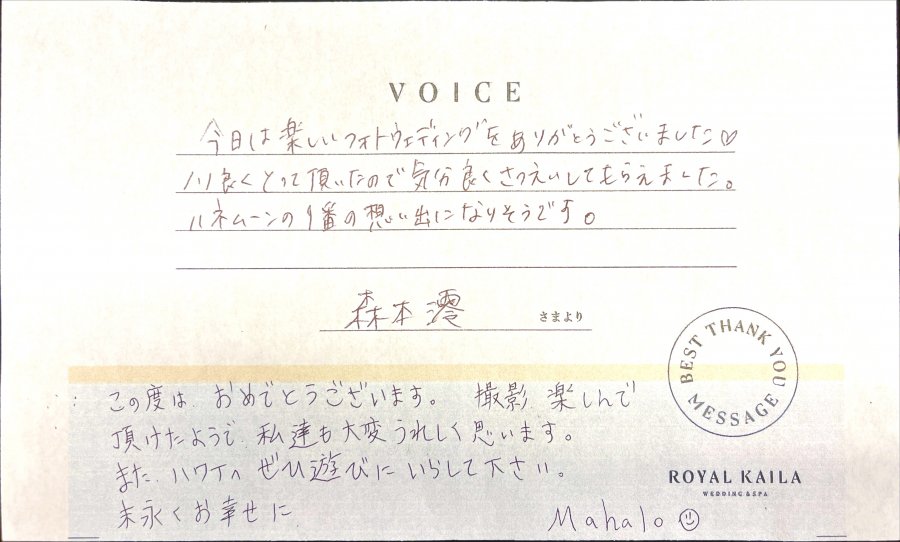 VOICE
今日は楽しいフォトウェディングをありがとうございました♡
ノリ良くとって頂いたので気分良くさつえいしてもらえました。
ハネムーンの1番の想い出になりそうです。
森本澪 さまより
BEST THANK YOU MESSAGE
この度は、おめでとうございます。 撮影、楽しんで
頂けたようで、私達も大変うれしく思います。
また、ハワイへ ぜひ遊びに いらして下さい。
末永くお幸せに
ROYAL KAILA
WEDDING & SPA
Mahalo ☺